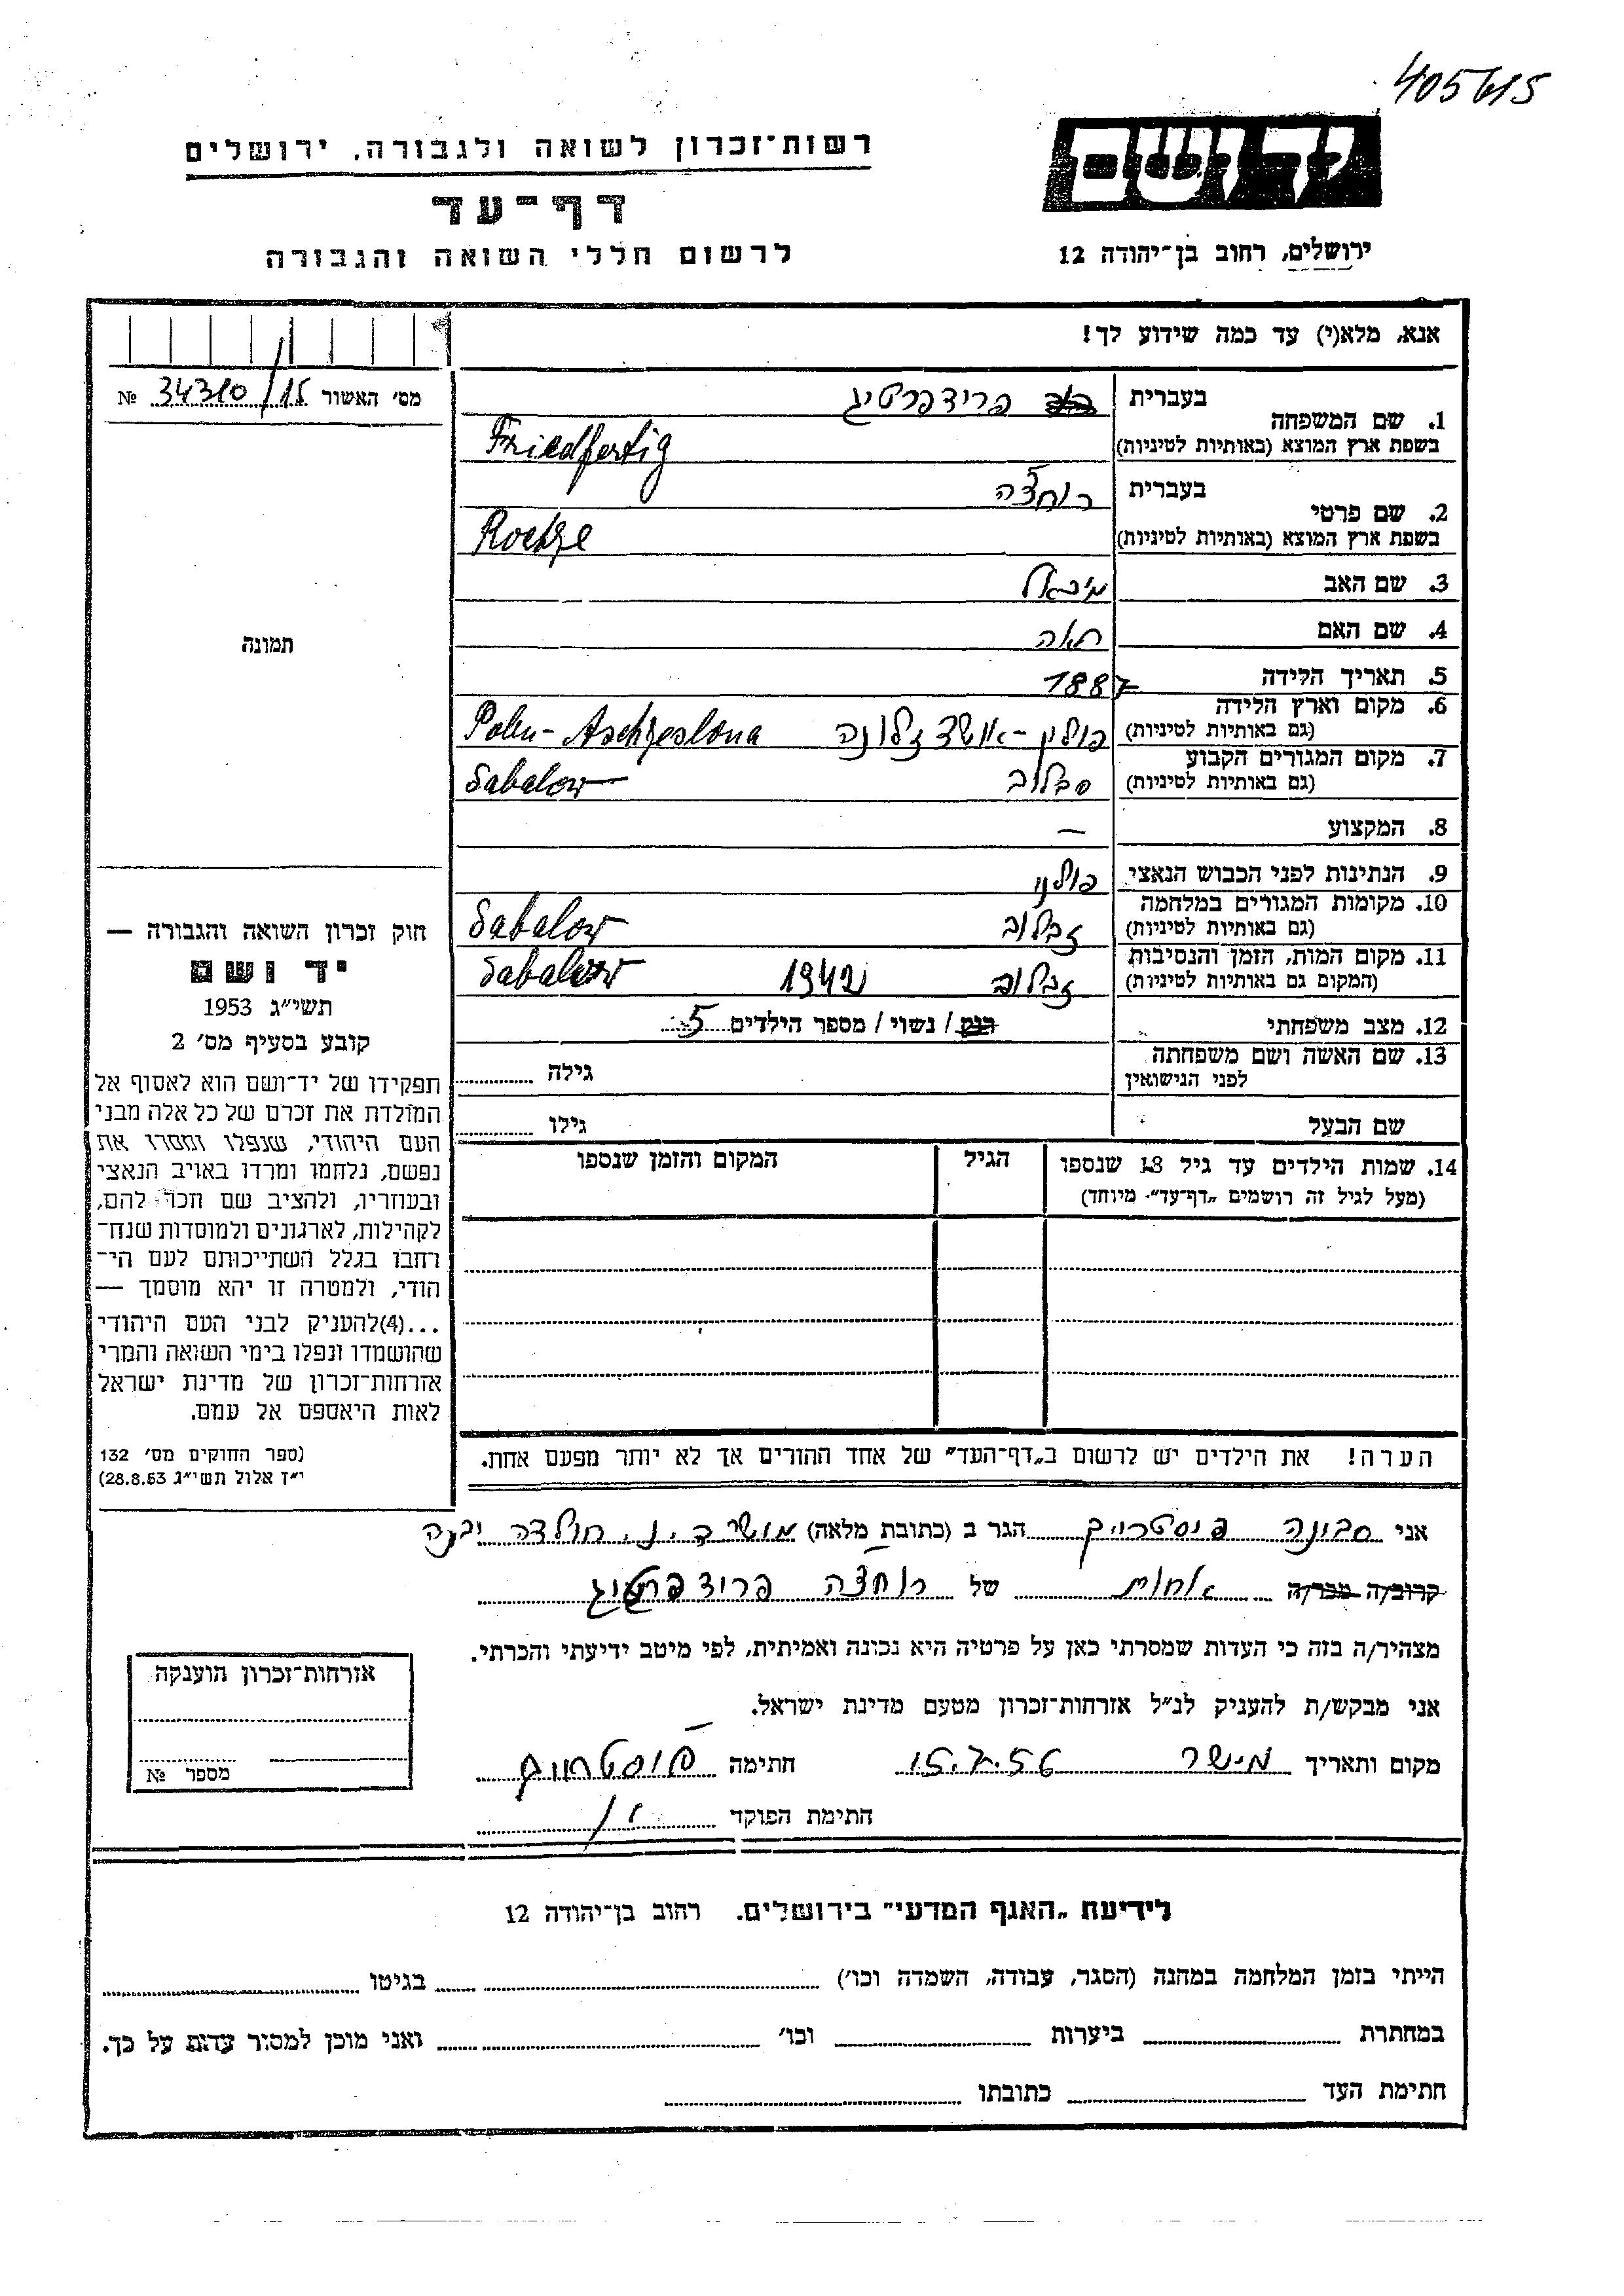 405615
רשות־זכרון לשואה ולגבורה, ירושלים
יד ושם
דף־עד
לרשום חללי השואה והגבורה
ירושלים, רחוב בן־יהודה 12
אנא, מלא(י) עד כמה שידוע לך!
מס׳ האשור 34310/15 №
1. שם המשפחה
בעברית פרידפרטיג
בשפת ארץ המוצא (באותיות לטיניות) Friedfertig
2. שם פרטי
בעברית רוחצה
בשפת ארץ המוצא (באותיות לטיניות)
3. שם האב מיכאל
4. שם האם
5. תאריך הלידה 1887
6. מקום וארץ הלידה
(גם באותיות לטיניות) פולין - Polen - Aschzeslona
7. מקום המגורים הקבוע
(גם באותיות לטיניות) סבלוב Sabalow
8. המקצוע —
9. הנתינות לפני הכבוש הנאצי פולני
10. מקומות המגורים במלחמה
(גם באותיות לטיניות) זבלוב Sabalow
11. מקום המות, הזמן והנסיבות
(המקום גם באותיות לטיניות) זבלוב 1942 Sabalow
12. מצב משפחתי רוק / נשוי / מספר הילדים 5
13. שם האשה ושם משפחתה
לפני הנישואין גילה
שם הבעל גילו
14. שמות הילדים עד גיל 18 שנספו
(מעל לגיל זה רושמים „דף־עד״ מיוחד)
הגיל
המקום והזמן שנספו
תמונה
חוק זכרון השואה והגבורה —
יד ושם
תשי״ג 1953
קובע בסעיף מס׳ 2
תפקידו של יד־ושם הוא לאסוף אל
המולדת את זכרם של כל אלה מבני
העם היהודי, שנפלו ומסרו את
נפשם, נלחמו ומרדו באויב הנאצי
ובעוזריו, ולהציב שם וזכר להם,
לקהילות, לארגונים ולמוסדות שנח־
רחבו בגלל השתייכותם לעם הי־
הודי, ולמטרה זו יהא מוסמך —
...(4)להעניק לבני העם היהודי
שהושמדו ונפלו בימי השואה והמרי
אזרחות־זכרון של מדינת ישראל
לאות היאספם אל עמם.
(ספר החוקים מס׳ 132
י״ז אלול תשי״ג 28.8.53)
הערה! את הילדים יש לרשום ב„דף־העד״ של אחד ההורים אך לא יותר מפעם אחת.
אני הגר ב (כתובת מלאה) יבנה
קרוב/ה מכר/ה אחות של רוחצה פרידפרטיג
מצהיר/ה בזה כי העדות שמסרתי כאן על פרטיה היא נכונה ואמיתית, לפי מיטב ידיעתי והכרתי.
אני מבקש/ת להעניק לנ״ל אזרחות־זכרון מטעם מדינת ישראל.
מקום ותאריך מישר 15.7.56 חתימה
חתימת הפוקד
אזרחות־זכרון הוענקה
מספר №
לידיעת „האגף המדעי״ בירושלים. רחוב בן־יהודה 12
הייתי בזמן המלחמה במחנה (הסגר, עבודה, השמדה וכו׳) בגיטו
במחתרת ביערות וכו׳ ואני מוכן למסור עדות על כך.
חתימת העד כתובתו